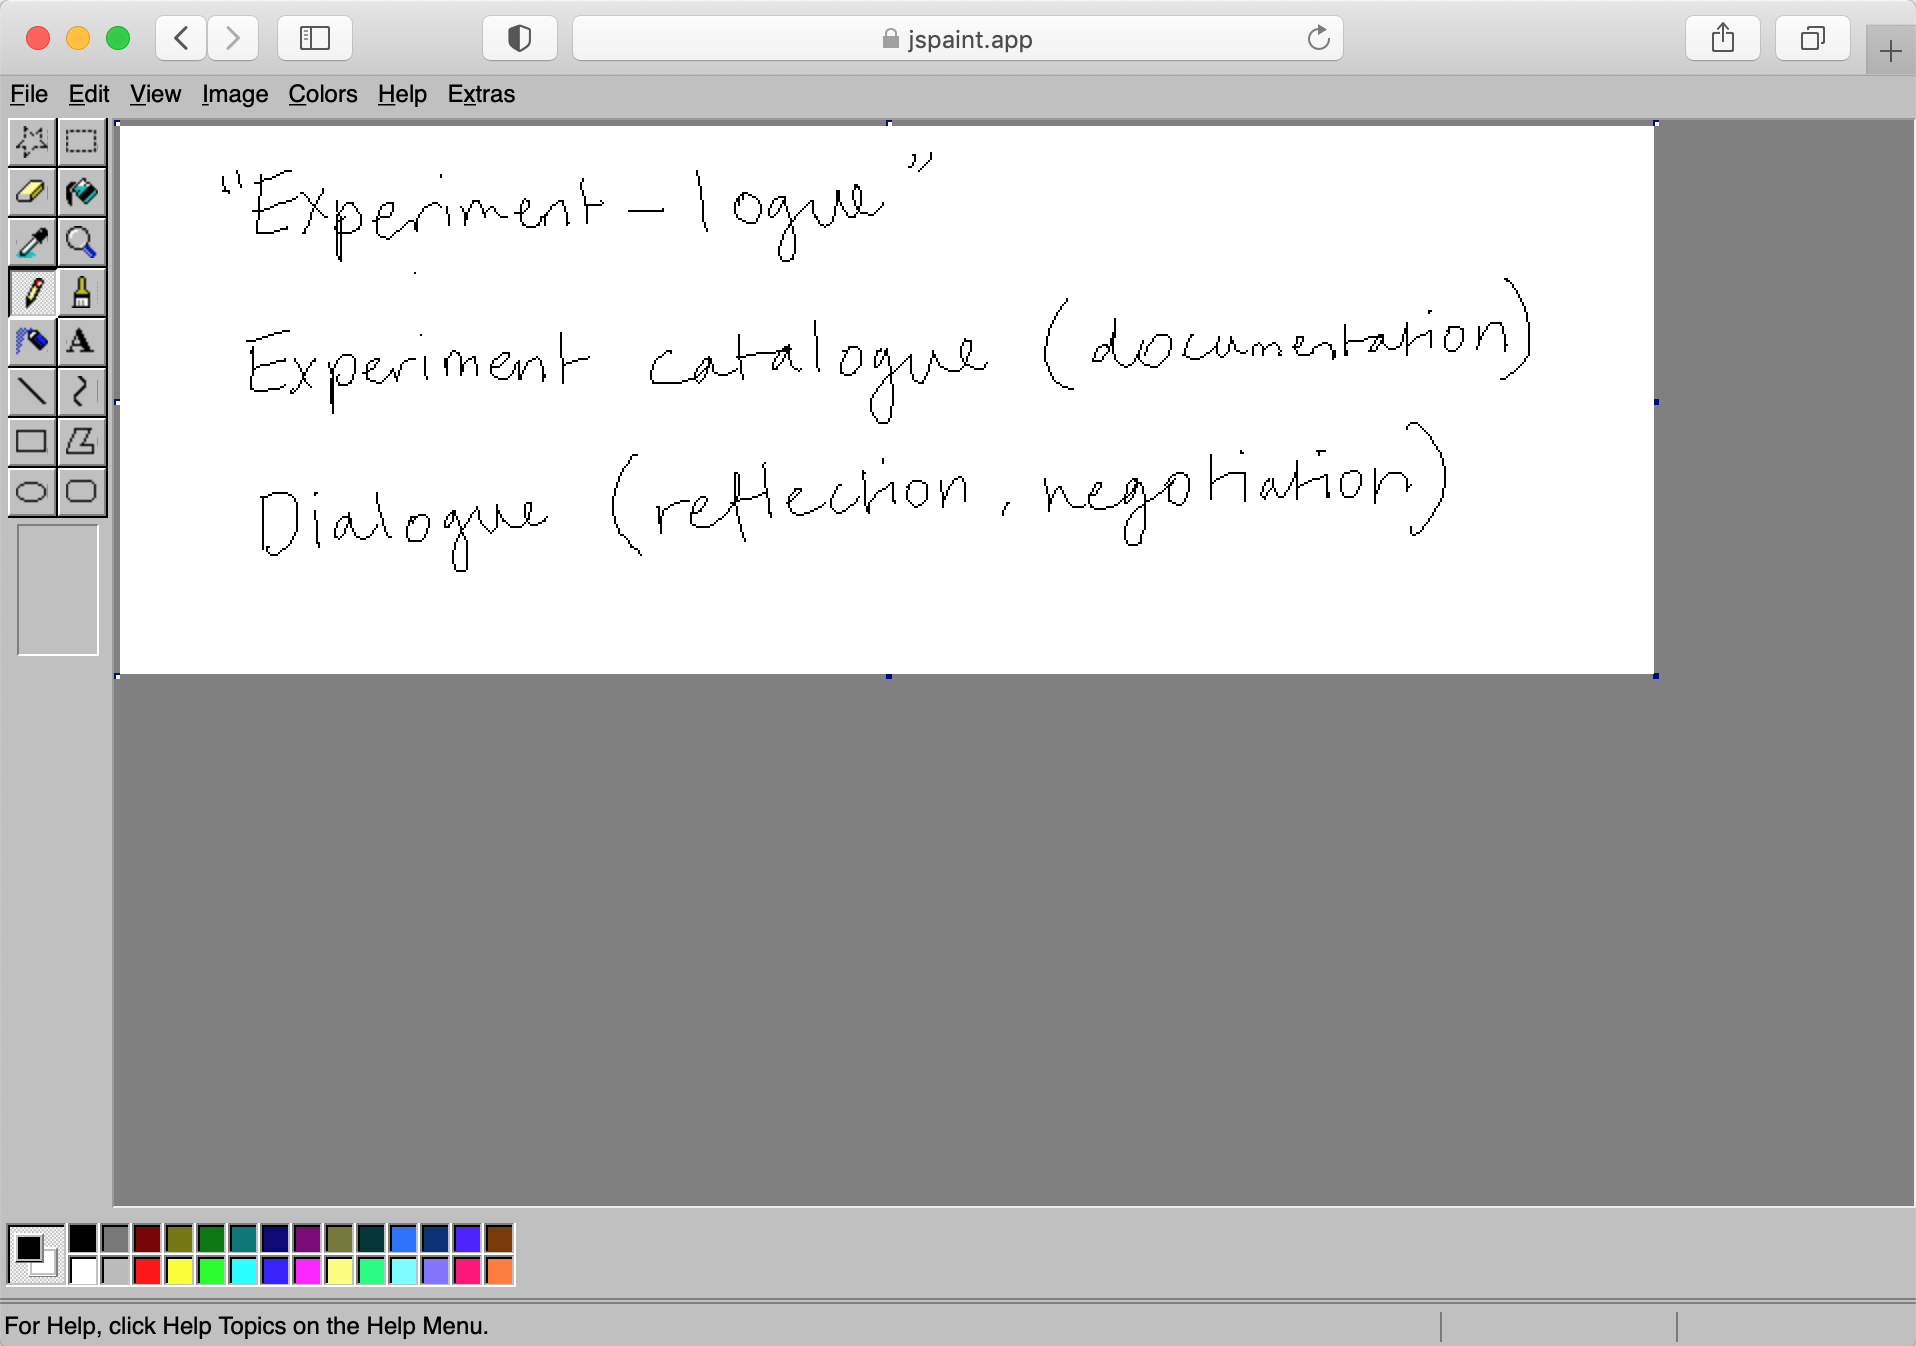 jspaint.app
File Edit View Image Colors Help Extras
"Experiment - logue"
Experiment catalogue (documentation)
Dialogue (reflection, negotiation)
A
For Help, click Help Topics on the Help Menu.